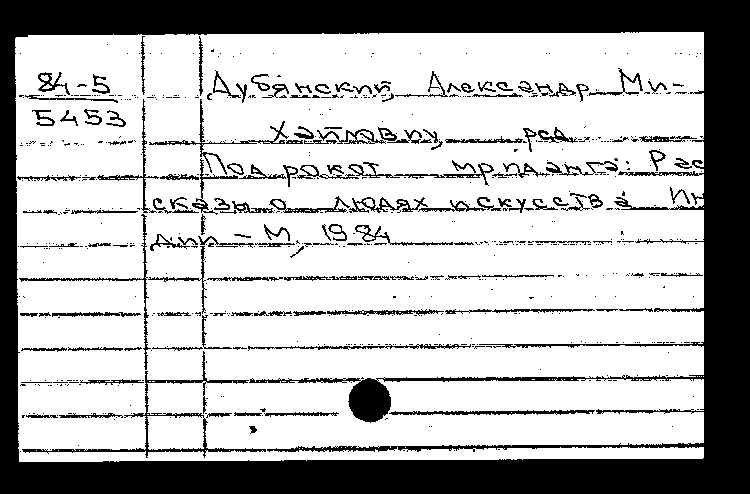 84-5
5453
Дубянский, Александр Ми-
хайлович, ред
Под рокот мриданга: Рас
сказы о людях искусства Ин
дии - М, 1984